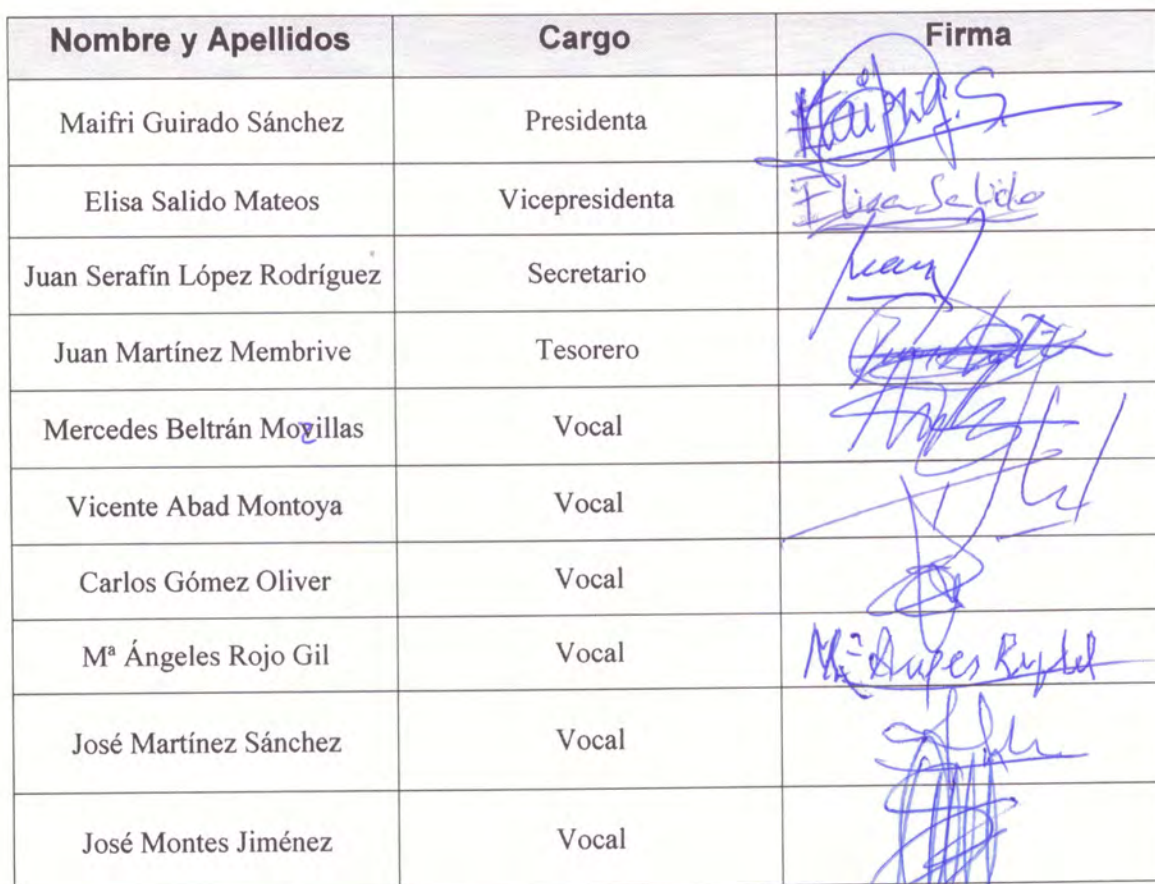 Nombre y Apellidos Cargo Firma
Maifri Guirado Sánchez Presidenta
Elisa Salido Mateos Vicepresidenta Elisa Salido
Juan Serafín López Rodríguez Secretario Juan
Juan Martínez Membrive Tesorero
Mercedes Beltrán Movillas Vocal
Vicente Abad Montoya Vocal
Carlos Gómez Oliver Vocal
Mª Ángeles Rojo Gil Vocal Mª
José Martínez Sánchez Vocal
José Montes Jiménez Vocal